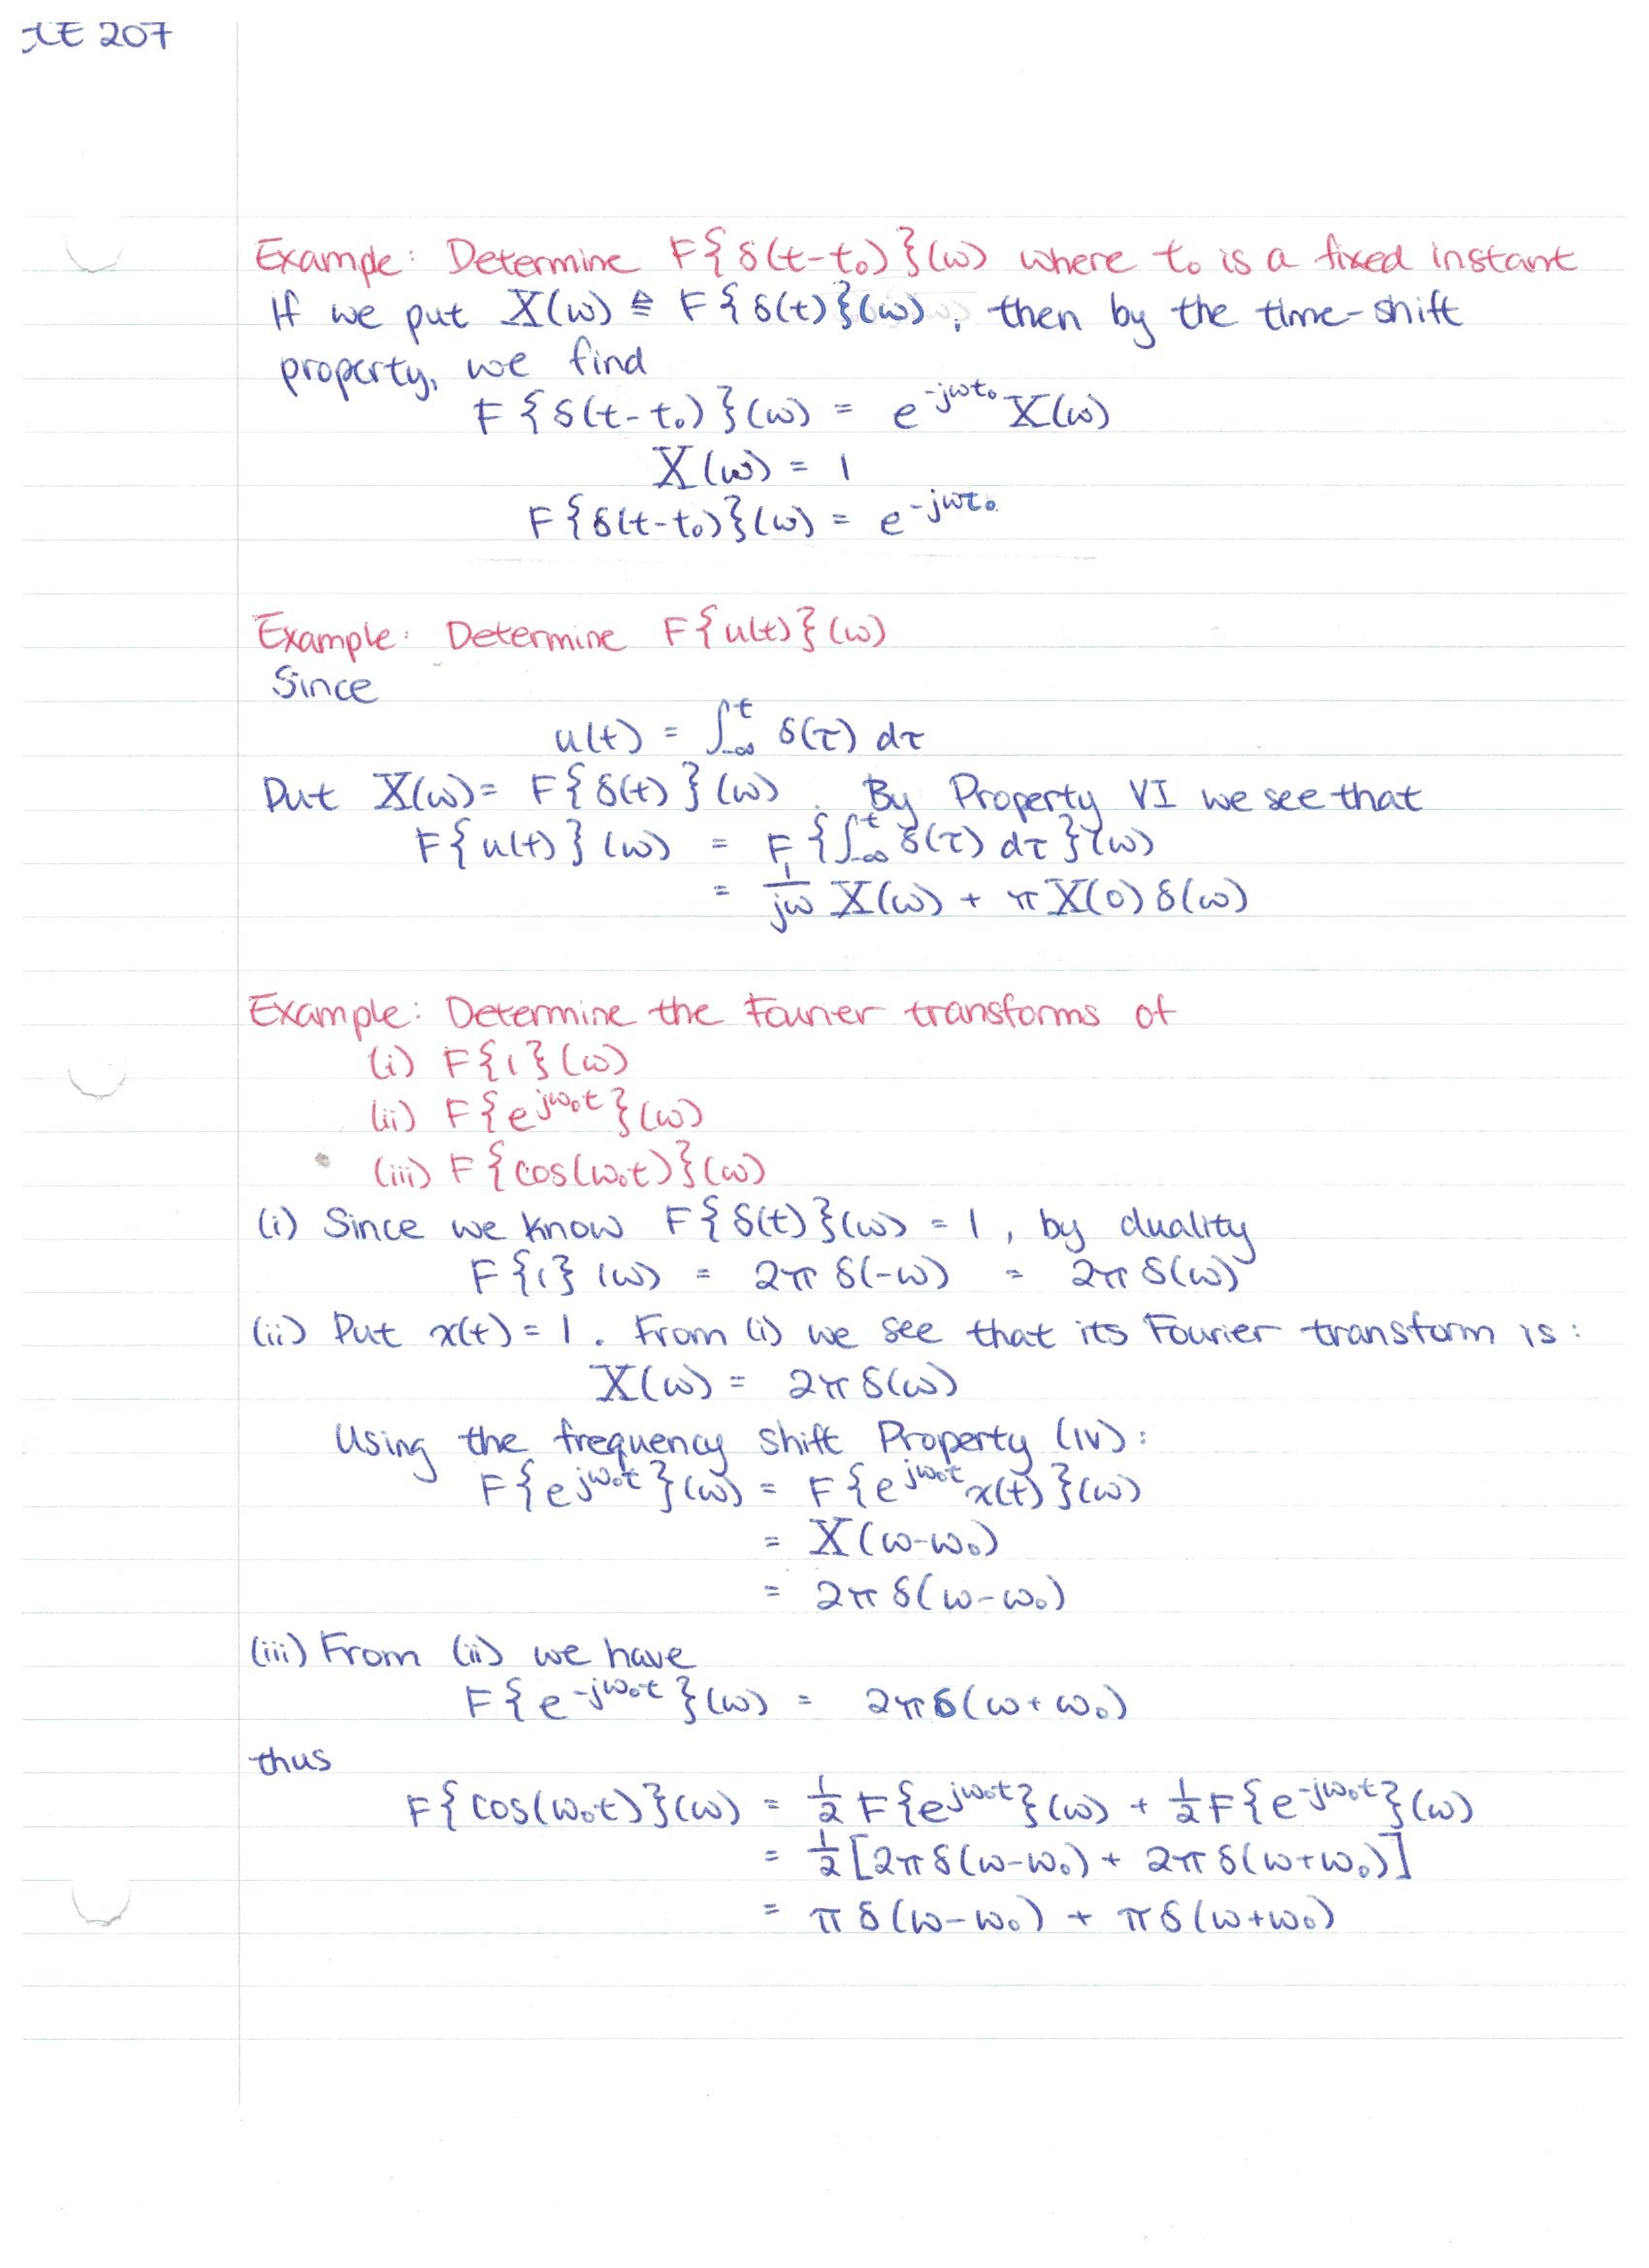 CE 207
Example: Determine F{δ(t-t₀)}(ω) where t₀ is a fixed instant
If we put X(ω) ≜ F{δ(t)}(ω), then by the time-shift
property, we find
F{δ(t-t₀)}(ω) = e^{-jωt₀} X(ω)
X(ω) = 1
F{δ(t-t₀)}(ω) = e^{-jωt₀}
Example: Determine F{u(t)}(ω)
Since
u(t) = ∫_{-∞}^{t} δ(τ) dτ
Put X(ω) = F{δ(t)}(ω). By Property VI we see that
F{u(t)}(ω) = F{∫_{-∞}^{t} δ(τ) dτ}(ω)
= 1/jω X(ω) + π X(0) δ(ω)
Example: Determine the Fourier transforms of
(i) F{1}(ω)
(ii) F{e^{jω₀t}}(ω)
(iii) F{cos(ω₀t)}(ω)
(i) Since we know F{δ(t)}(ω) = 1, by duality
F{1}(ω) = 2π δ(-ω) = 2π δ(ω)
(ii) Put x(t) = 1. From (i) we see that its Fourier transform is:
X(ω) = 2π δ(ω)
Using the frequency shift Property (IV):
F{e^{jω₀t}}(ω) = F{e^{jω₀t} x(t)}(ω)
= X(ω-ω₀)
= 2π δ(ω-ω₀)
(iii) From (ii) we have
F{e^{-jω₀t}}(ω) = 2π δ(ω+ω₀)
thus
F{cos(ω₀t)}(ω) = ½ F{e^{jω₀t}}(ω) + ½ F{e^{-jω₀t}}(ω)
= ½ [2π δ(ω-ω₀) + 2π δ(ω+ω₀)]
= π δ(ω-ω₀) + π δ(ω+ω₀)